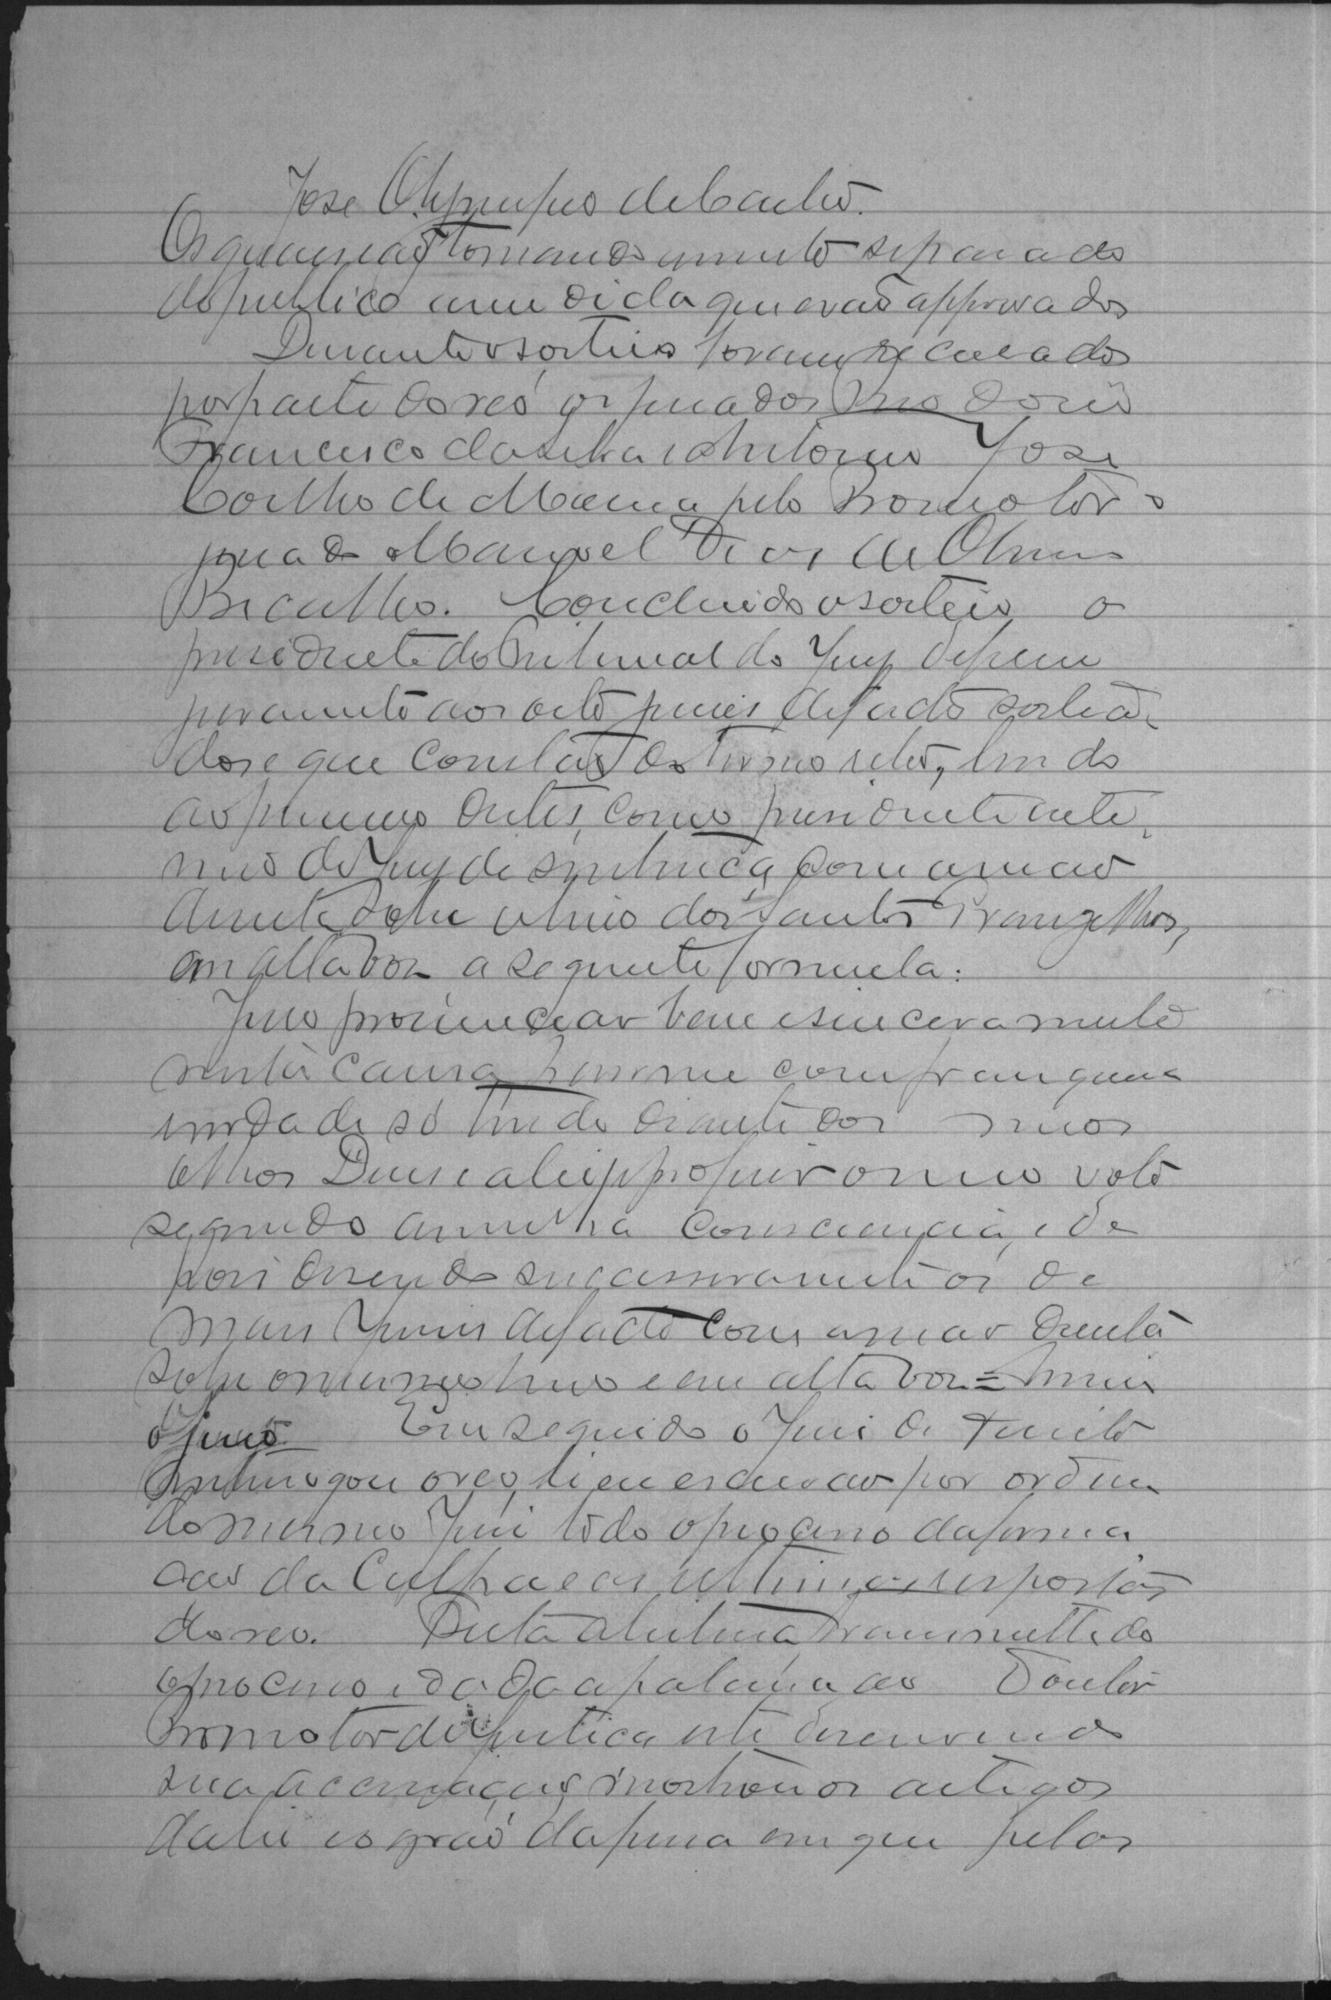 José Olympio de Castro.
Os quaes são tomando assento separado
do publico a medida que erão approvados
Durante o sorteio foram recusados
por parte do reo os jurados
Francisco da Silva e Antonio José
Coelho de Moura pelo Promotor o
jurado Manoel Dias de
Bicalho. Concluido o sorteio o
presidente do Tribunal do Jury
juramento aos oito juises de facto sortea-
dos e que constão do termo retro, lendo
ao primeiro delles, como presidente inte-
rino do Jury de sentença com a mão
direita sobre o livro dos Santos Evangelhos,
em alta voz a seguinte formula:
Juro pronunciar bem e sinceramente
nesta causa haver-me com franqueza
verdade só tendo diante dos meos
olhos Deus e a lei e proferir o meo voto
segundo a minha consciencia, e de
pois disendo successivamente os de
mais Juises de facto com a mão direita
sobre o mesmo livro e em alta voz = Assim
o juro. Em seguida o Jui de Direito
interrogou o reo, li eu escrivão por ordem
do mesmo Jui todo o processo da forma
ção da Culpa e as ultimas respostas
do reo. Feita a leitura transmittido
o processo e dada a palavra ao Doutor
Promotor de Justiça este desenvolveo
sua accusação, mostrou os artigos
da lei e o grao da pena em que pelas